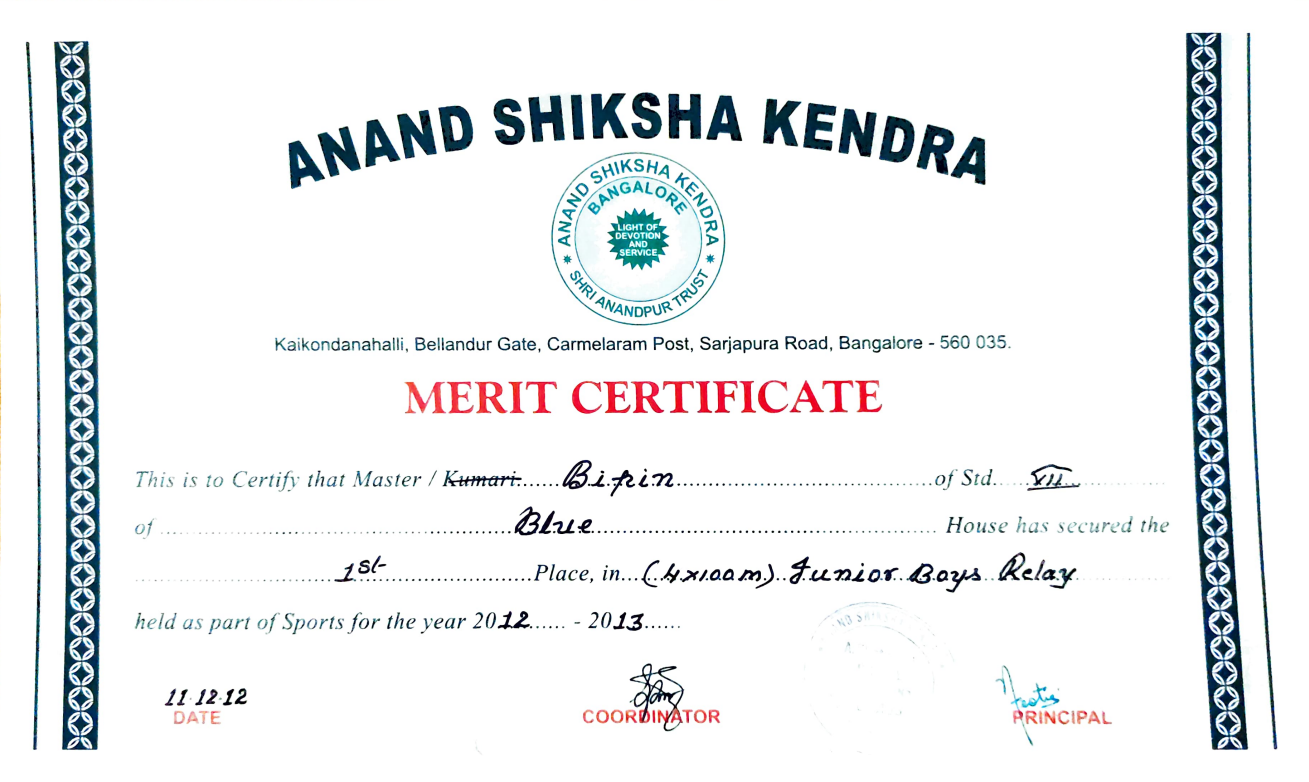 ANAND SHIKSHA KENDRA
ANAND SHIKSHA KENDRA
BANGALORE
LIGHT OF
DEVOTION
AND
SERVICE
SHRI ANANDPUR TRUST
Kaikondanahalli, Bellandur Gate, Carmelaram Post, Sarjapura Road, Bangalore - 560 035.
MERIT CERTIFICATE
This is to Certify that Master / Kumari......Bipin..........of Std.....VII
of ..........Blue.......... House has secured the
..........1st..........Place, in...(4x100m) Junior Boys Relay
held as part of Sports for the year 2012...... - 2013......
11-12-12
DATE
COORDINATOR
PRINCIPAL